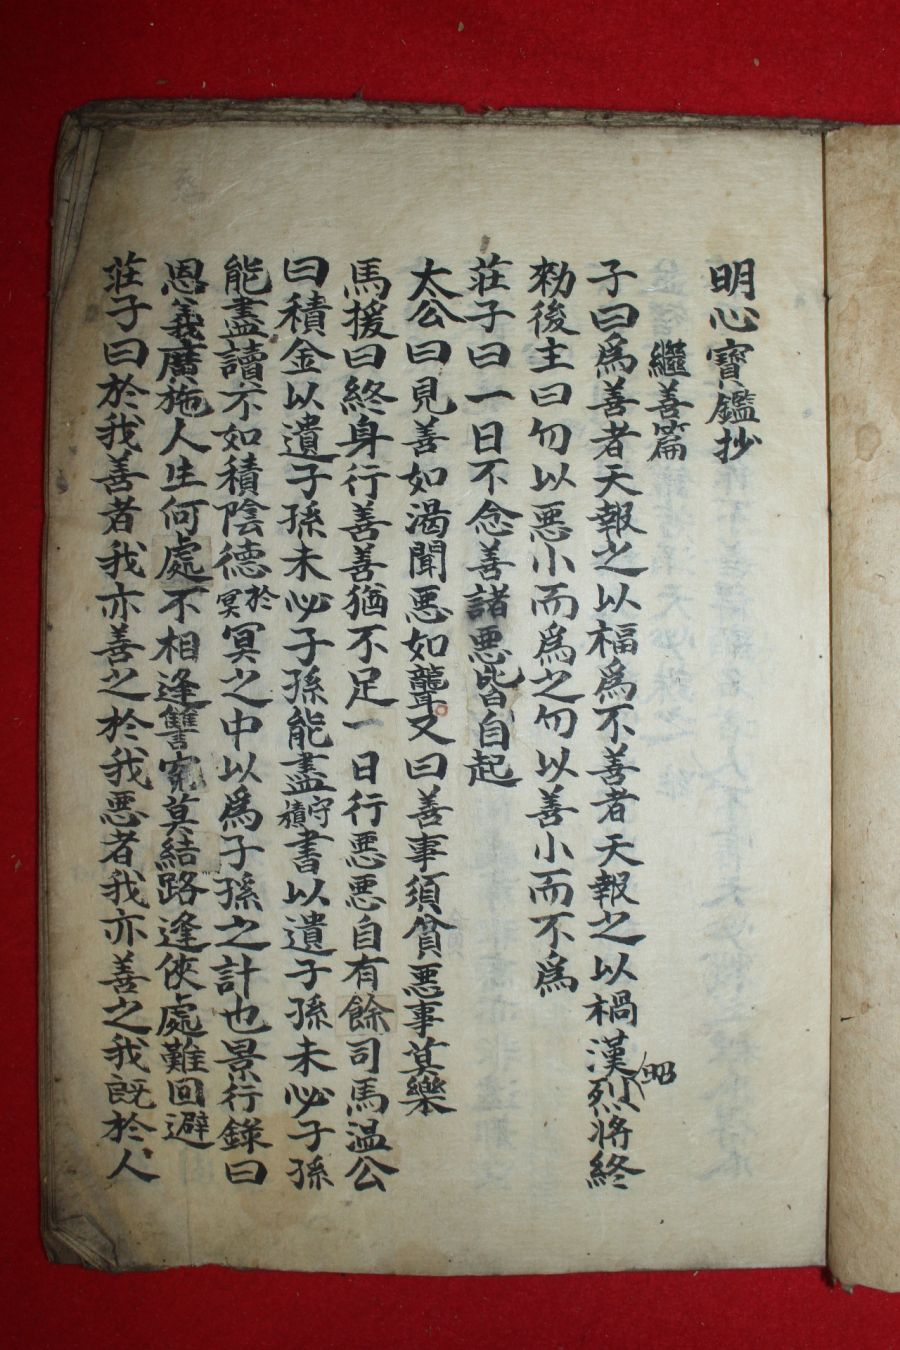 明心寶鑑抄
繼善篇
子曰爲善者天報之以福爲不善者天報之以禍漢昭烈將終
勑後主曰勿以惡小而爲之勿以善小而不爲
莊子曰一日不念善諸惡皆自起
太公曰見善如渴聞惡如聾又曰善事須貧惡事莫樂
馬援曰終身行善善猶不足一日行惡惡自有餘司馬温公
曰積金以遺子孫未必子孫能盡守積書以遺子孫未必子孫
能盡讀不如積陰德於冥冥之中以爲子孫之計也景行錄曰
恩義廣施人生何處不相逢讐寃莫結路逢俠處難回避
莊子曰於我善者我亦善之於我惡者我亦善之我旣於人